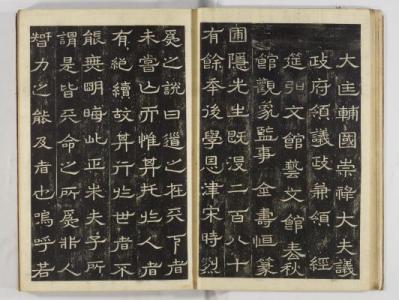 大匡輔國崇祿大夫議
政府領議政兼領經
筵弘文館藝文館春秋
館觀象監事金壽恒篆
圃隱先生既沒二百八十
有餘年後學恩津宋時烈
爲之說曰道之在天下者
未嘗亡而惟其托於人者
有絶續故其行於世者不
能無明晦此正朱夫子所
謂是皆天命之所爲非人
智力之能及者也嗚呼若